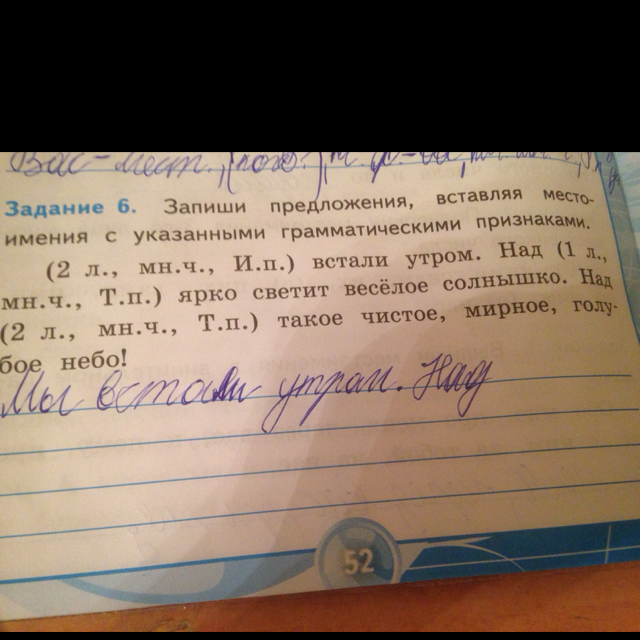 Вас - мест., (
Задание 6. Запиши предложения, вставляя место-
имения с указанными грамматическими признаками.
(2 л., мн.ч., И.п.) встали утром. Над (1 л.,
мн.ч., Т.п.) ярко светит весёлое солнышко. Над
(2 л., мн.ч., Т.п.) такое чистое, мирное, голу-
бое небо!
Мы встали утром. Над
52